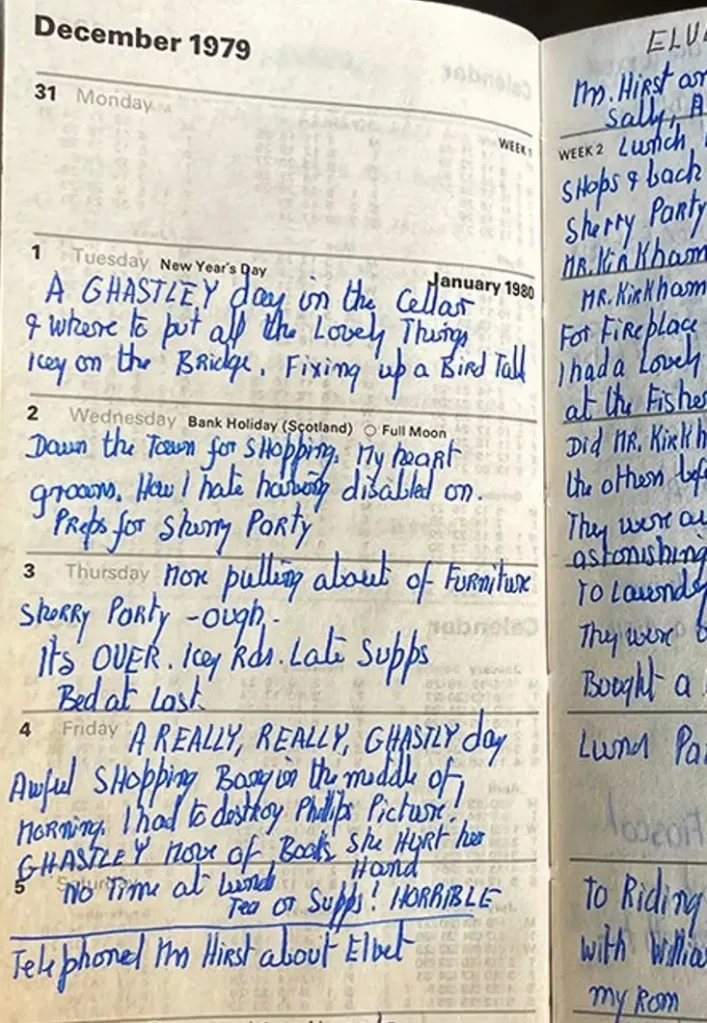 December 1979
31 Monday
WEEK 1
1 Tuesday New Year's Day January 1980
A GHASTLEY day in the Cellar
& where to put all the Lovely Things
Icey on the BRIDGE. Fixing up a Bird Tall
2 Wednesday Bank Holiday (Scotland) Full Moon
Down the Town for SHOPPING. My heart
groans. How I hate having disabled on.
Preps for Sherry PARTY
3 Thursday More pulling about of FURNITURE
SHERRY PARTY - OUGH -
It's OVER. Icey Rds. Late Supps
Bed at Last.
4 Friday A REALLY, REALLY, GHASTLY day
Awful SHOPPING Bang in the middle of
Morning. I had to destroy Phillips Picture!
GHASTLEY Move of Books She HURT her
Hand
5 Saturday No Time at Lunch
Tea or Supps! HORRIBLE
Telephoned Mrs HIRST about Elvet
ELVE
Mrs. HIRST an
Sally, A
WEEK 2 Lunch,
SHOPS & back
Sherry Party
MR. KIRKHAM
MR. KIRKHAM
For FirePlace
I had a Lovely
at the Fisher
Did MR. Kirkh
the others bef
They were a
astonishing
To Lavendy
They were
Bought a
Lunch Pa
To Riding
with Willia
my Rom